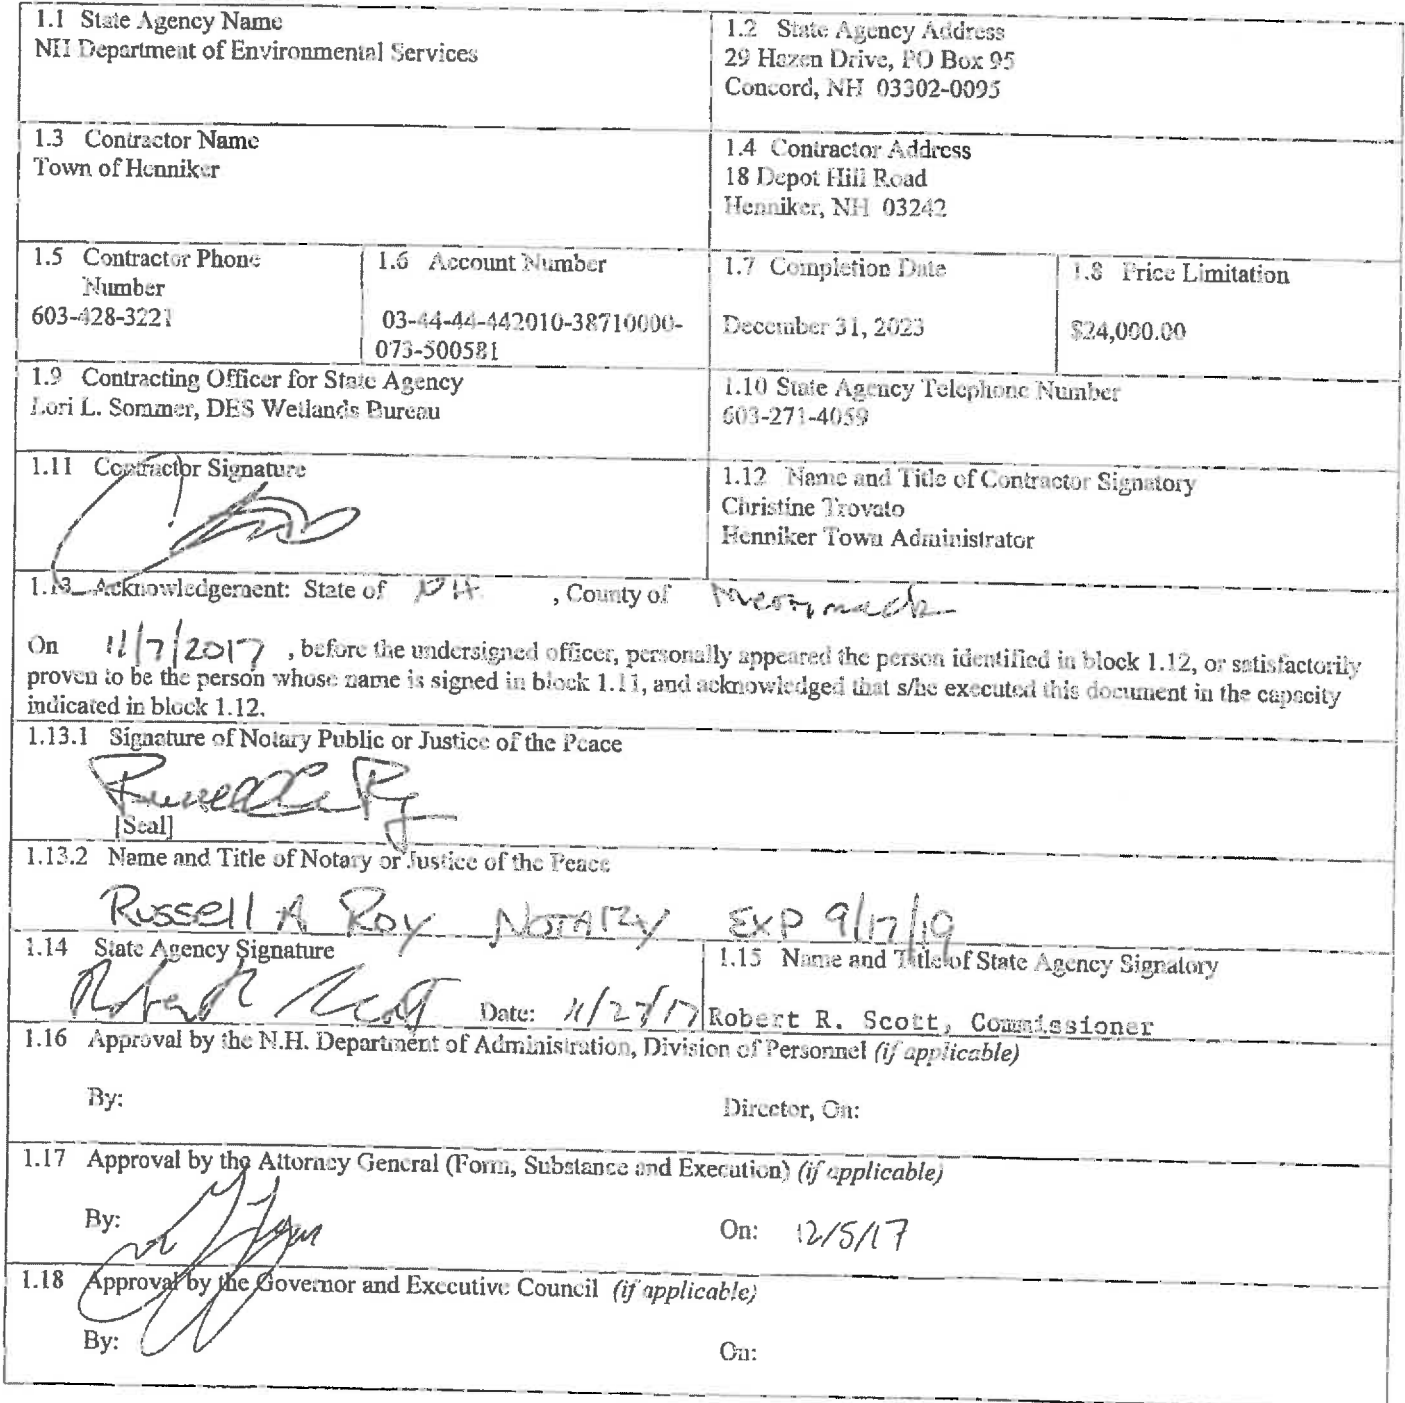 1.1 State Agency Name
NH Department of Environmental Services
1.2 State Agency Address
29 Hazen Drive, PO Box 95
Concord, NH 03302-0095
1.3 Contractor Name
Town of Henniker
1.4 Contractor Address
18 Depot Hill Road
Henniker, NH 03242
1.5 Contractor Phone
Number
603-428-3221
1.6 Account Number
03-44-44-442010-38710000-
073-500581
1.7 Completion Date
December 31, 2023
1.8 Price Limitation
$24,000.00
1.9 Contracting Officer for State Agency
Lori L. Sommer, DES Wetlands Bureau
1.10 State Agency Telephone Number
603-271-4059
1.11 Contractor Signature
1.12 Name and Title of Contractor Signatory
Christine Trovato
Henniker Town Administrator
1.13 Acknowledgement: State of NH , County of Merrimack
On 11/7/2017 , before the undersigned officer, personally appeared the person identified in block 1.12, or satisfactorily
proven to be the person whose name is signed in block 1.11, and acknowledged that s/he executed this document in the capacity
indicated in block 1.12.
1.13.1 Signature of Notary Public or Justice of the Peace
[Seal]
1.13.2 Name and Title of Notary or Justice of the Peace
Russell A Roy NOTARY EXP 9/17/19
1.14 State Agency Signature
Date: 11/27/17
1.15 Name and Title of State Agency Signatory
Robert R. Scott, Commissioner
1.16 Approval by the N.H. Department of Administration, Division of Personnel (if applicable)
By:
Director, On:
1.17 Approval by the Attorney General (Form, Substance and Execution) (if applicable)
By:
On: 12/5/17
1.18 Approval by the Governor and Executive Council (if applicable)
By:
On: